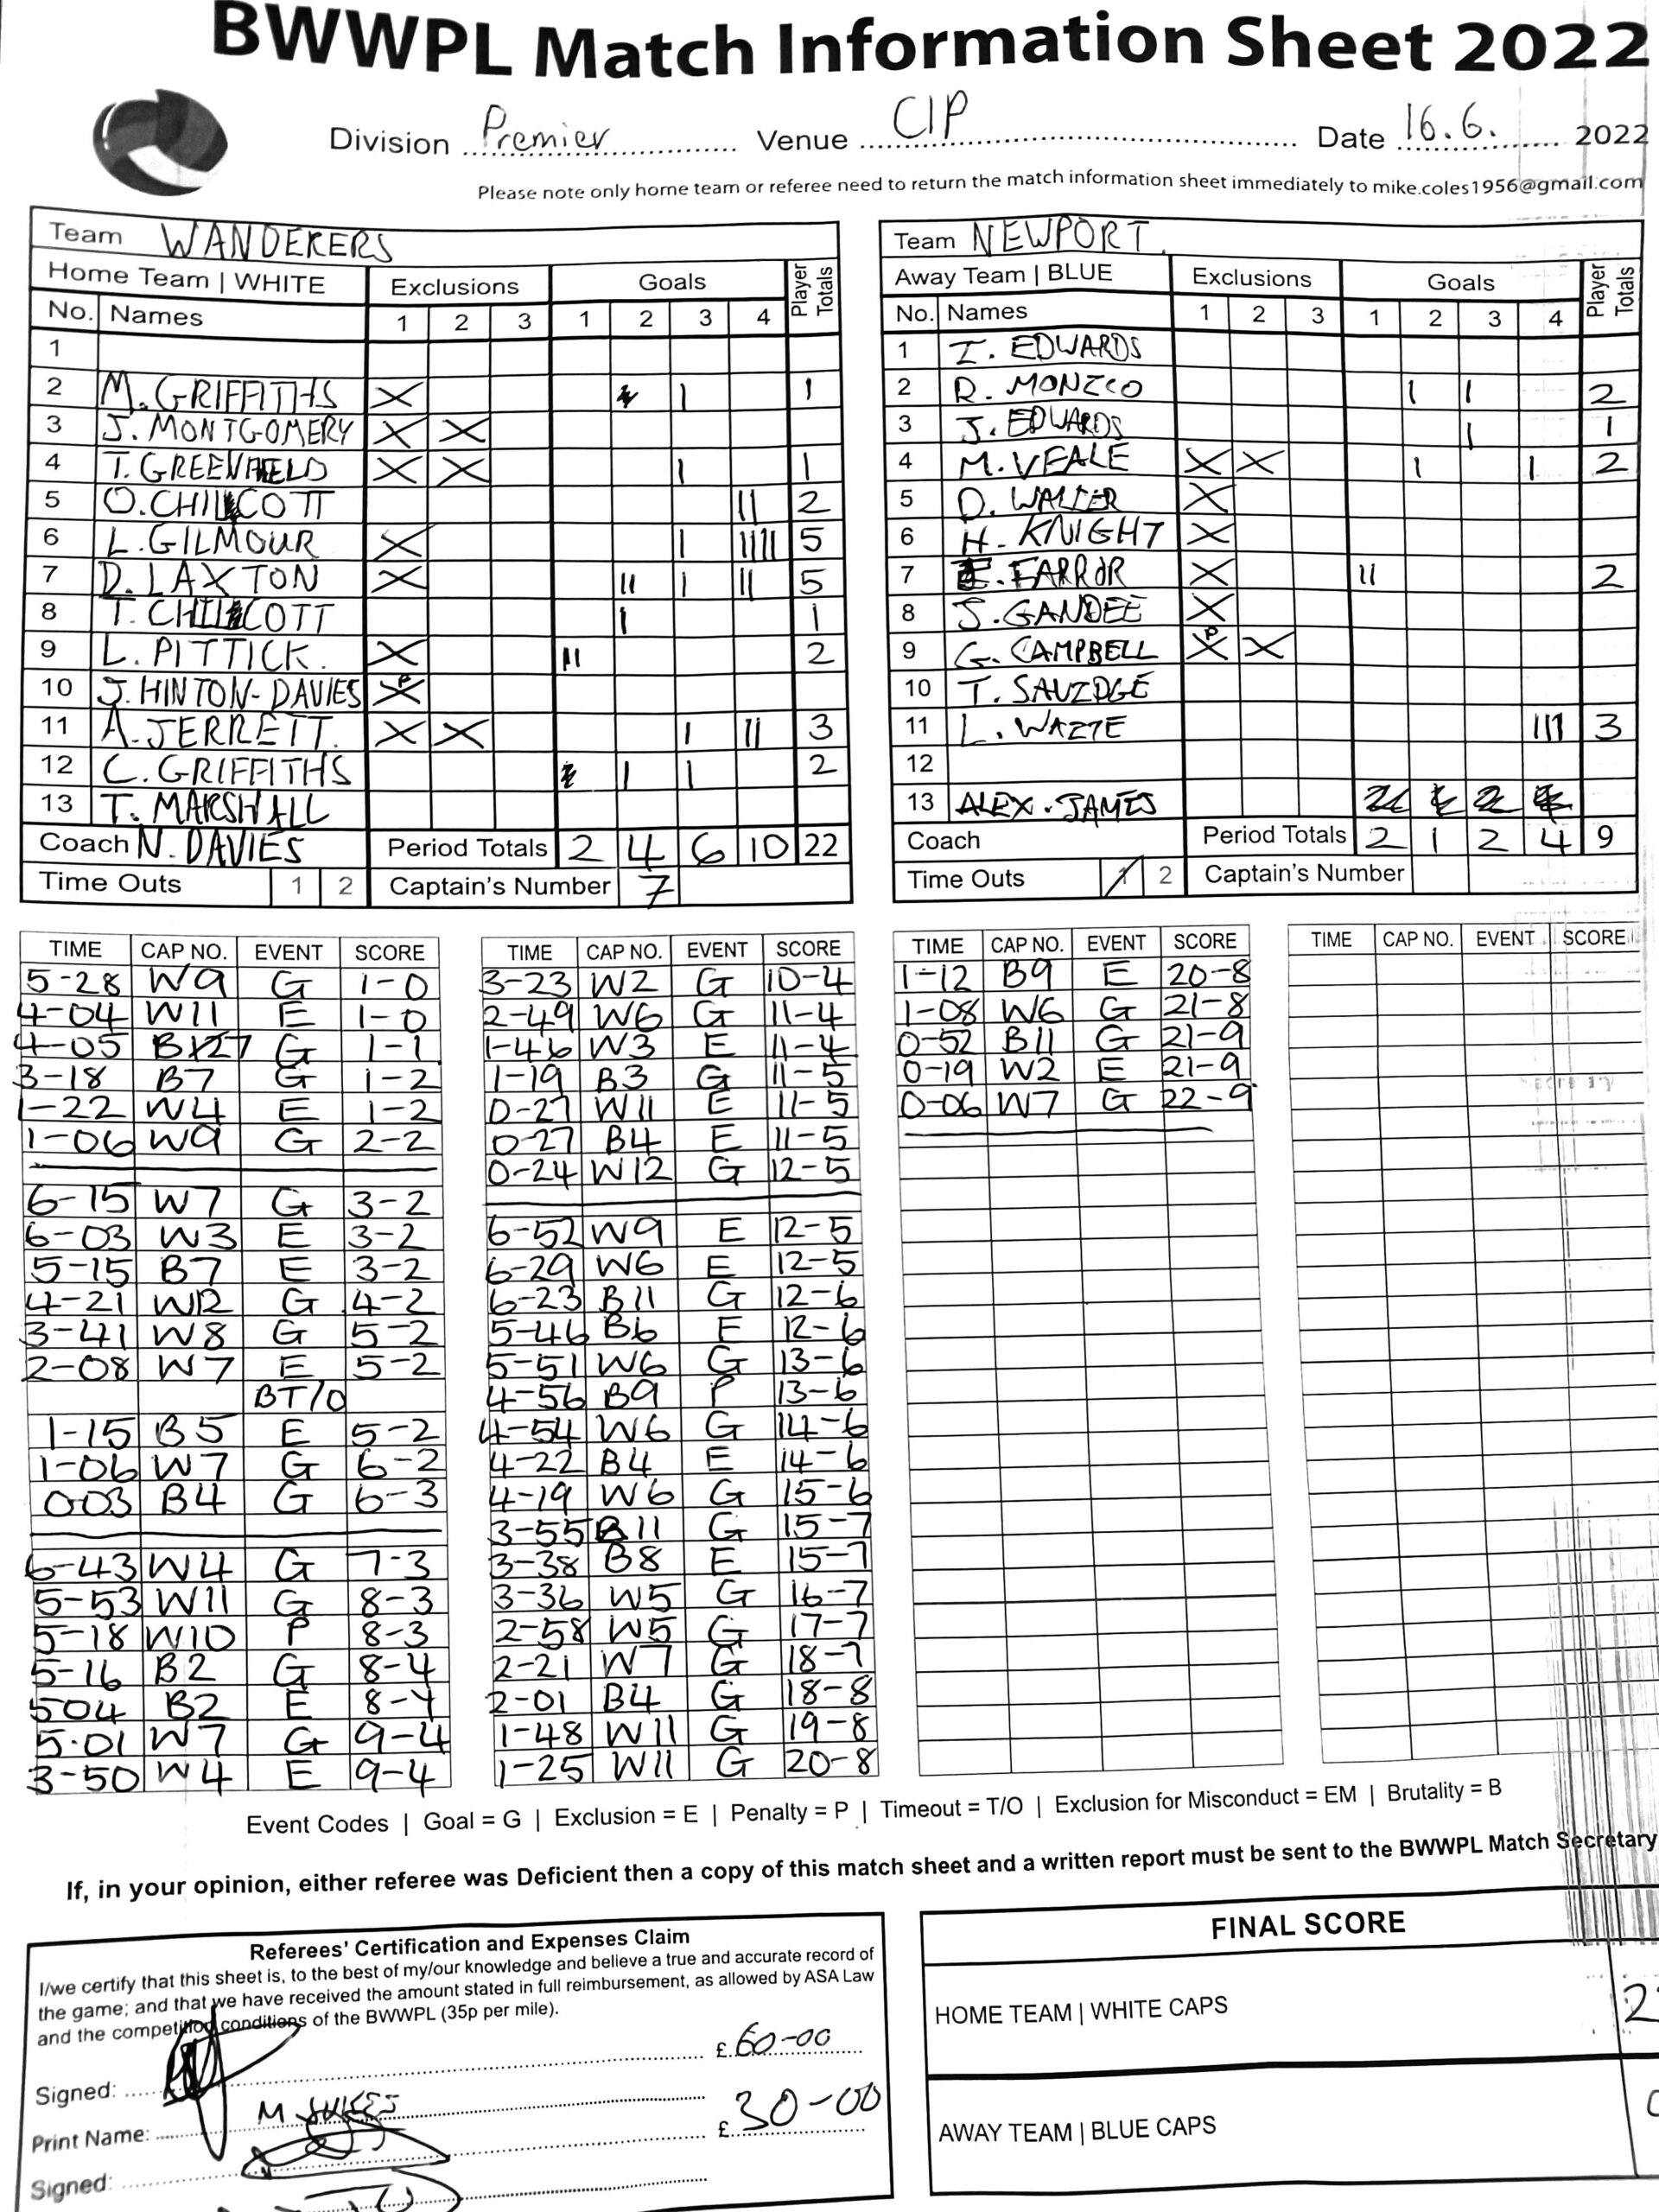 BWWPL Match Information Sheet 2022
Division Premier Venue CIP Date 16.6. 2022
Please note only home team or referee need to return the match information sheet immediately to mike.coles1956@gmail.com
Team WANDERERS
Home Team | WHITE Exclusions Goals Player Totals
No. Names 1 2 3 1 2 3 4
1
2 M. GRIFFITHS X I 1
3 J. MONTGOMERY X X
4 T. GREENFIELD X X I 1
5 O. CHILCOTT II 2
6 L. GILMOUR X I IIII 5
7 D. LAXTON X II I II 5
8 T. CHILCOTT I 1
9 L. PITTICK. X II 2
10 J. HINTON-DAVIES X P
11 A. JERRETT. X X I II 3
12 C. GRIFFITHS I I 2
13 T. MARSHALL
Coach N. DAVIES Period Totals 2 4 6 10 22
Time Outs 1 2 Captain's Number 7
Team NEWPORT
Away Team | BLUE Exclusions Goals Player Totals
No. Names 1 2 3 1 2 3 4
1 I. EDWARDS
2 R. MONICO I I 2
3 J. EDWARDS I 1
4 M. VEALE X X I I 2
5 D. WALTER X
6 H. KNIGHT X
7 FARROR X II 2
8 S. GANDEE X
9 G. CAMPBELL X P X
10 T. SAVIDGE
11 L. WAITE III 3
12
13 ALEX. JAMES
Coach Period Totals 2 1 2 4 9
Time Outs 1 2 Captain's Number
TIME CAP NO. EVENT SCORE
5-28 W9 G 1-0
4-04 W11 E 1-0
4-05 B7 G 1-1
3-18 B7 G 1-2
1-22 W4 E 1-2
1-06 W9 G 2-2
6-15 W7 G 3-2
6-03 W3 E 3-2
5-15 B7 E 3-2
4-21 W12 G 4-2
3-41 W8 G 5-2
2-08 W7 E 5-2
BT/O
1-15 B5 E 5-2
1-06 W7 G 6-2
0-03 B4 G 6-3
6-43 W4 G 7-3
5-53 W11 G 8-3
5-18 W10 P 8-3
5-16 B2 G 8-4
504 B2 E 8-4
5.01 W7 G 9-4
3-50 W4 E 9-4
TIME CAP NO. EVENT SCORE
3-23 W2 G 10-4
2-49 W6 G 11-4
1-46 W3 E 11-4
1-19 B3 G 11-5
0-27 W11 E 11-5
0-27 B4 E 11-5
0-24 W12 G 12-5
6-52 W9 E 12-5
6-29 W6 E 12-5
6-23 B11 G 12-6
5-46 B6 E 12-6
5-51 W6 G 13-6
4-56 B9 P 13-6
4-54 W6 G 14-6
4-22 B4 E 14-6
4-19 W6 G 15-6
3-55 B11 G 15-7
3-38 B8 E 15-7
3-36 W5 G 16-7
2-58 W5 G 17-7
2-21 W7 G 18-7
2-01 B4 G 18-8
1-48 W11 G 19-8
1-25 W11 G 20-8
TIME CAP NO. EVENT SCORE
1-12 B9 E 20-8
1-08 W6 G 21-8
0-52 B11 G 21-9
0-19 W2 E 21-9
0-06 W7 G 22-9
TIME CAP NO. EVENT SCORE
Event Codes | Goal = G | Exclusion = E | Penalty = P | Timeout = T/O | Exclusion for Misconduct = EM | Brutality = B
If, in your opinion, either referee was Deficient then a copy of this match sheet and a written report must be sent to the BWWPL Match Secretary
Referees' Certification and Expenses Claim
I/we certify that this sheet is, to the best of my/our knowledge and believe a true and accurate record of
the game; and that we have received the amount stated in full reimbursement, as allowed by ASA Law
and the competition conditions of the BWWPL (35p per mile).
Signed: £ 60-00
Print Name: M
£ 30-00
Signed:
FINAL SCORE
HOME TEAM | WHITE CAPS 2
AWAY TEAM | BLUE CAPS